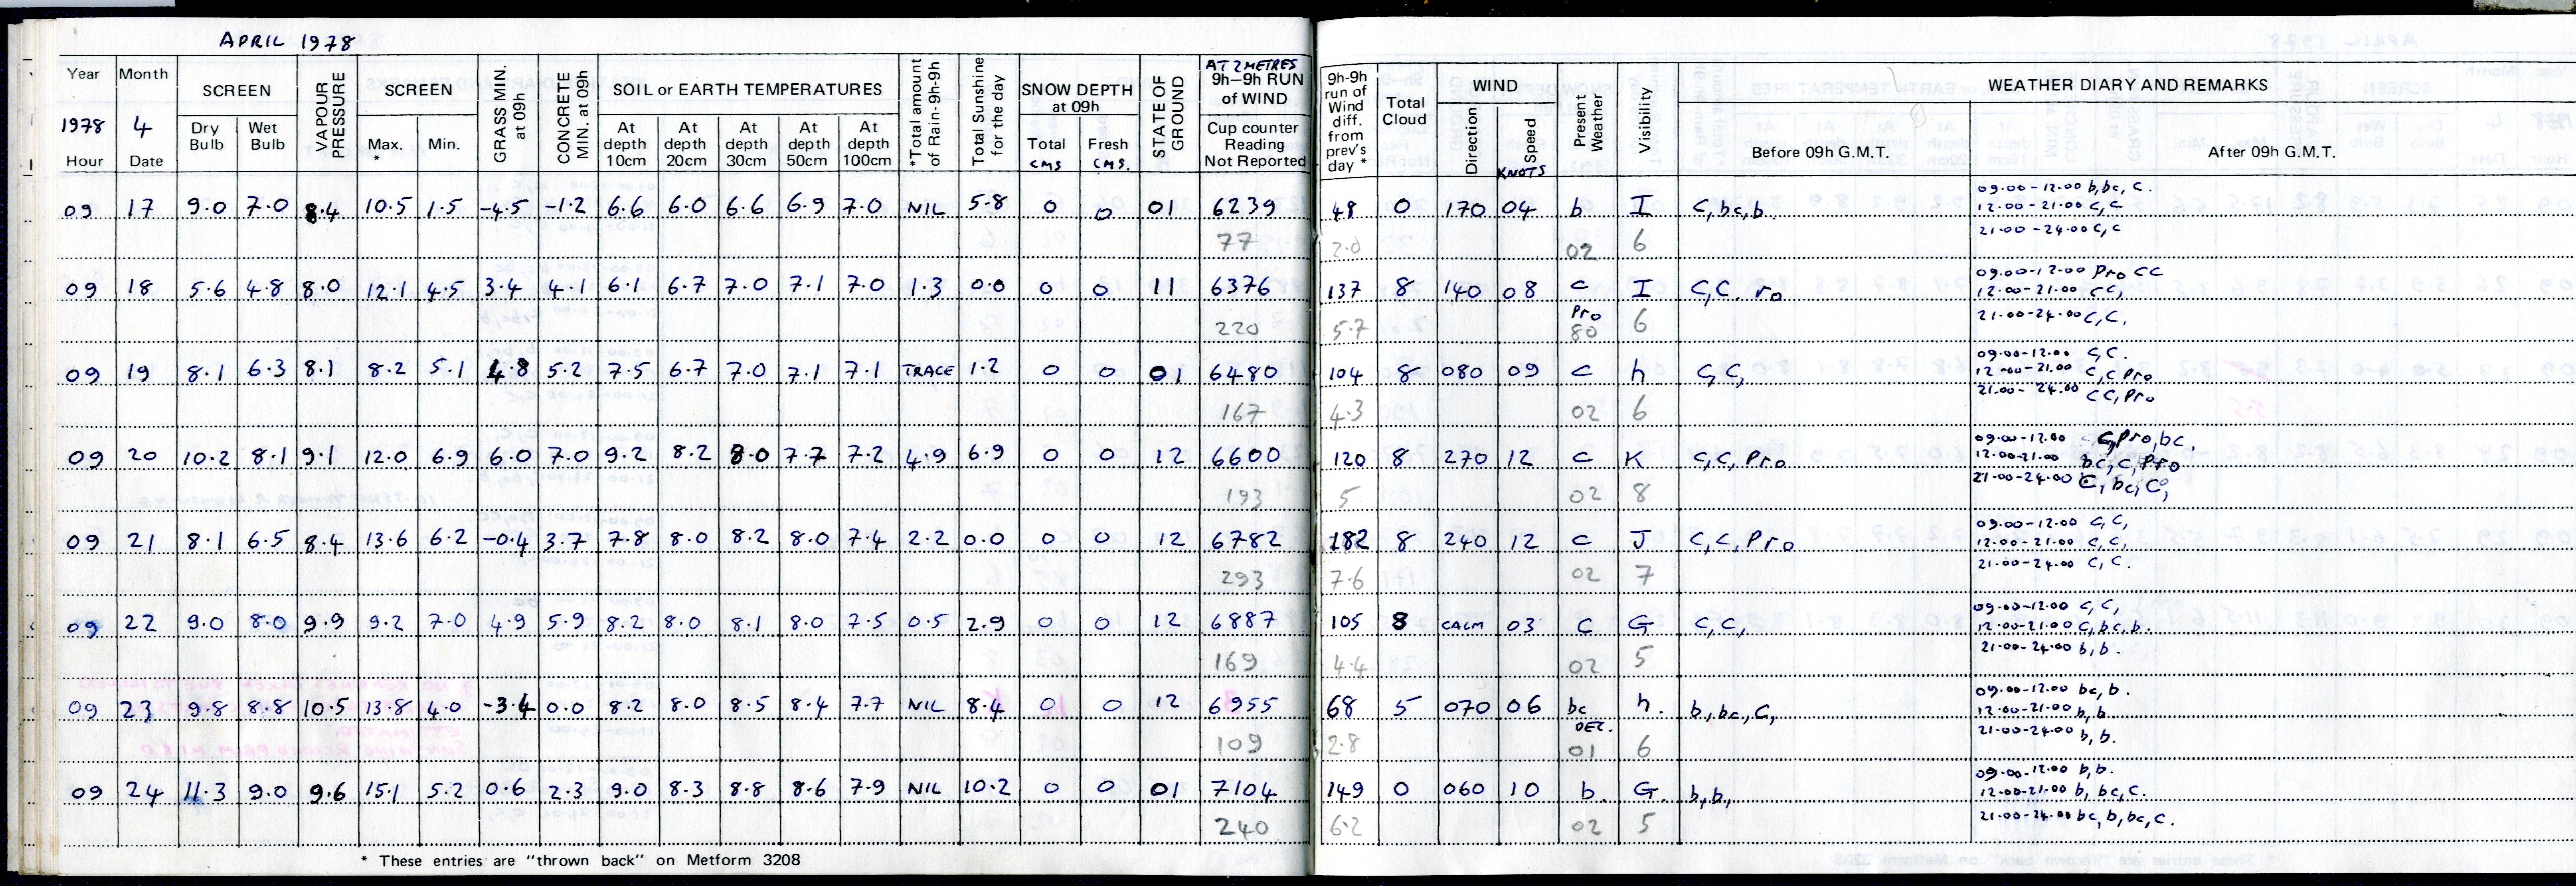 APRIL 1978
Year Month SCREEN VAPOUR PRESSURE SCREEN GRASS MIN. at 09h CONCRETE MIN. at 09h SOIL or EARTH TEMPERATURES *Total amount of Rain-9h-9h Total Sunshine for the day SNOW DEPTH at 09h STATE OF GROUND AT 2 METRES 9h–9h RUN of WIND 9h-9h run of Wind diff. from prev's day * Total Cloud WIND Present Weather Visibility WEATHER DIARY AND REMARKS
1978 4 Dry Bulb Wet Bulb Max. * Min. At depth 10cm At depth 20cm At depth 30cm At depth 50cm At depth 100cm Total CMS Fresh CMS. Cup counter Reading Not Reported Direction Speed KNOTS Before 09h G.M.T. After 09h G.M.T.
Hour Date
09.00-12.00 b, bc, c.
09 17 9.0 7.0 8.4 10.5 1.5 -4.5 -1.2 6.6 6.0 6.6 6.9 7.0 NIL 5.8 0 0 01 6239 48 0 170 04 b I c, bc, b. 12.00-21.00 c, c
77 2.0 02 6 21.00-24.00 c, c
09.00-12.00 Pro cc
09 18 5.6 4.8 8.0 12.1 4.5 3.4 4.1 6.1 6.7 7.0 7.1 7.0 1.3 0.0 0 0 11 6376 137 8 140 08 c I c, c. ro 12.00-21.00 cc,
220 5.7 Pro 80 6 21.00-24.00 c, c.
09.00-12.00 c, c.
09 19 8.1 6.3 8.1 8.2 5.1 4.8 5.2 7.5 6.7 7.0 7.1 7.1 TRACE 1.2 0 0 01 6480 104 8 080 09 c h c, c, 12.00-21.00 c, c Pro
167 4.3 02 6 21.00-24.00 cc, Pro
09.00-12.00 c, Pro, bc,
09 20 10.2 8.1 9.1 12.0 6.9 6.0 7.0 9.2 8.2 8.0 7.7 7.2 4.9 6.9 0 0 12 6600 120 8 270 12 c K c, c, Pro 12.00-21.00 bc, c, Pro
193 5 02 8 21.00-24.00 c, bc, c,
09.00-12.00 c, c,
09 21 8.1 6.5 8.4 13.6 6.2 -0.4 3.7 7.8 8.0 8.2 8.0 7.4 2.2 0.0 0 0 12 6782 182 8 240 12 c J c, c, Pro 12.00-21.00 c, c,
293 7.6 02 7 21.00-24.00 c, c.
09.00-12.00 c, c,
09 22 9.0 8.0 9.9 9.2 7.0 4.9 5.9 8.2 8.0 8.1 8.0 7.5 0.5 2.9 0 0 12 6887 105 8 CALM 03 c G c, c, 12.00-21.00 c, bc, b.
169 4.4 02 5 21.00-24.00 b, b.
09.00-12.00 bc, b.
09 23 9.8 8.8 10.5 13.8 4.0 -3.4 0.0 8.2 8.0 8.5 8.4 7.7 NIL 8.4 0 0 12 6955 68 5 070 06 bc h. b, bc, c, 12.00-21.00 b, b.
109 2.8 01 6 21.00-24.00 b, b.
09.00-12.00 b, b.
09 24 11.3 9.0 9.6 15.1 5.2 0.6 2.3 9.0 8.3 8.8 8.6 7.9 NIL 10.2 0 0 01 7104 149 0 060 10 b. G. b, b, 12.00-21.00 b, bc, c.
240 6.2 02 5 21.00-24.00 bc, b, bc, c.
* These entries are "thrown back" on Metform 3208